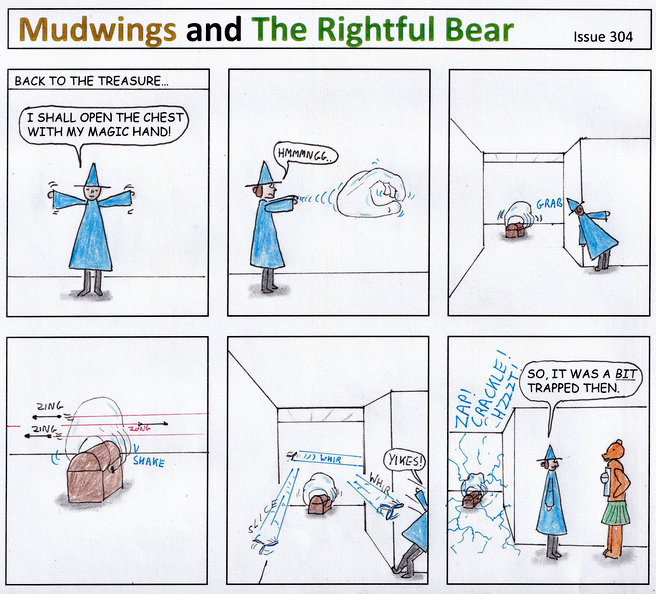 Mudwings and The Rightful Bear
Issue 304
BACK TO THE TREASURE...
I SHALL OPEN THE CHEST
WITH MY MAGIC HAND!
HMMMNGG..
GRAB
ZING
ZING
ZONG
SHAKE
WHIR
WHIR
YIKES!
SLICE
ZAP!
CRACKLE!
HZZZT!
SO, IT WAS A BIT
TRAPPED THEN.